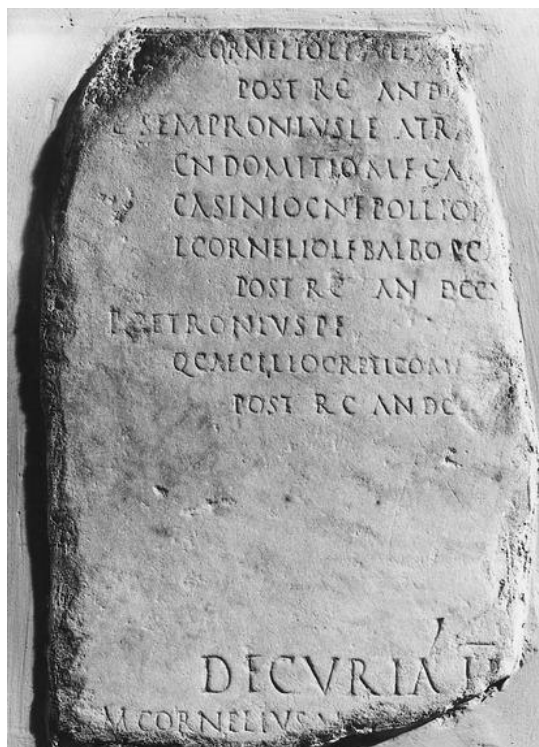 CORNELIO L F
POST R C AN
C SEMPRONIVS L F ATRA
CN DOMITIO M F CA
C ASINIO CN F POLLIO
L CORNELIO L F BALBO P CA
POST R C AN DCC
P PETRONIVS P F
Q CAECILIO CRETICO
POST R C AN DC
DECVRIA
M CORNELIVS